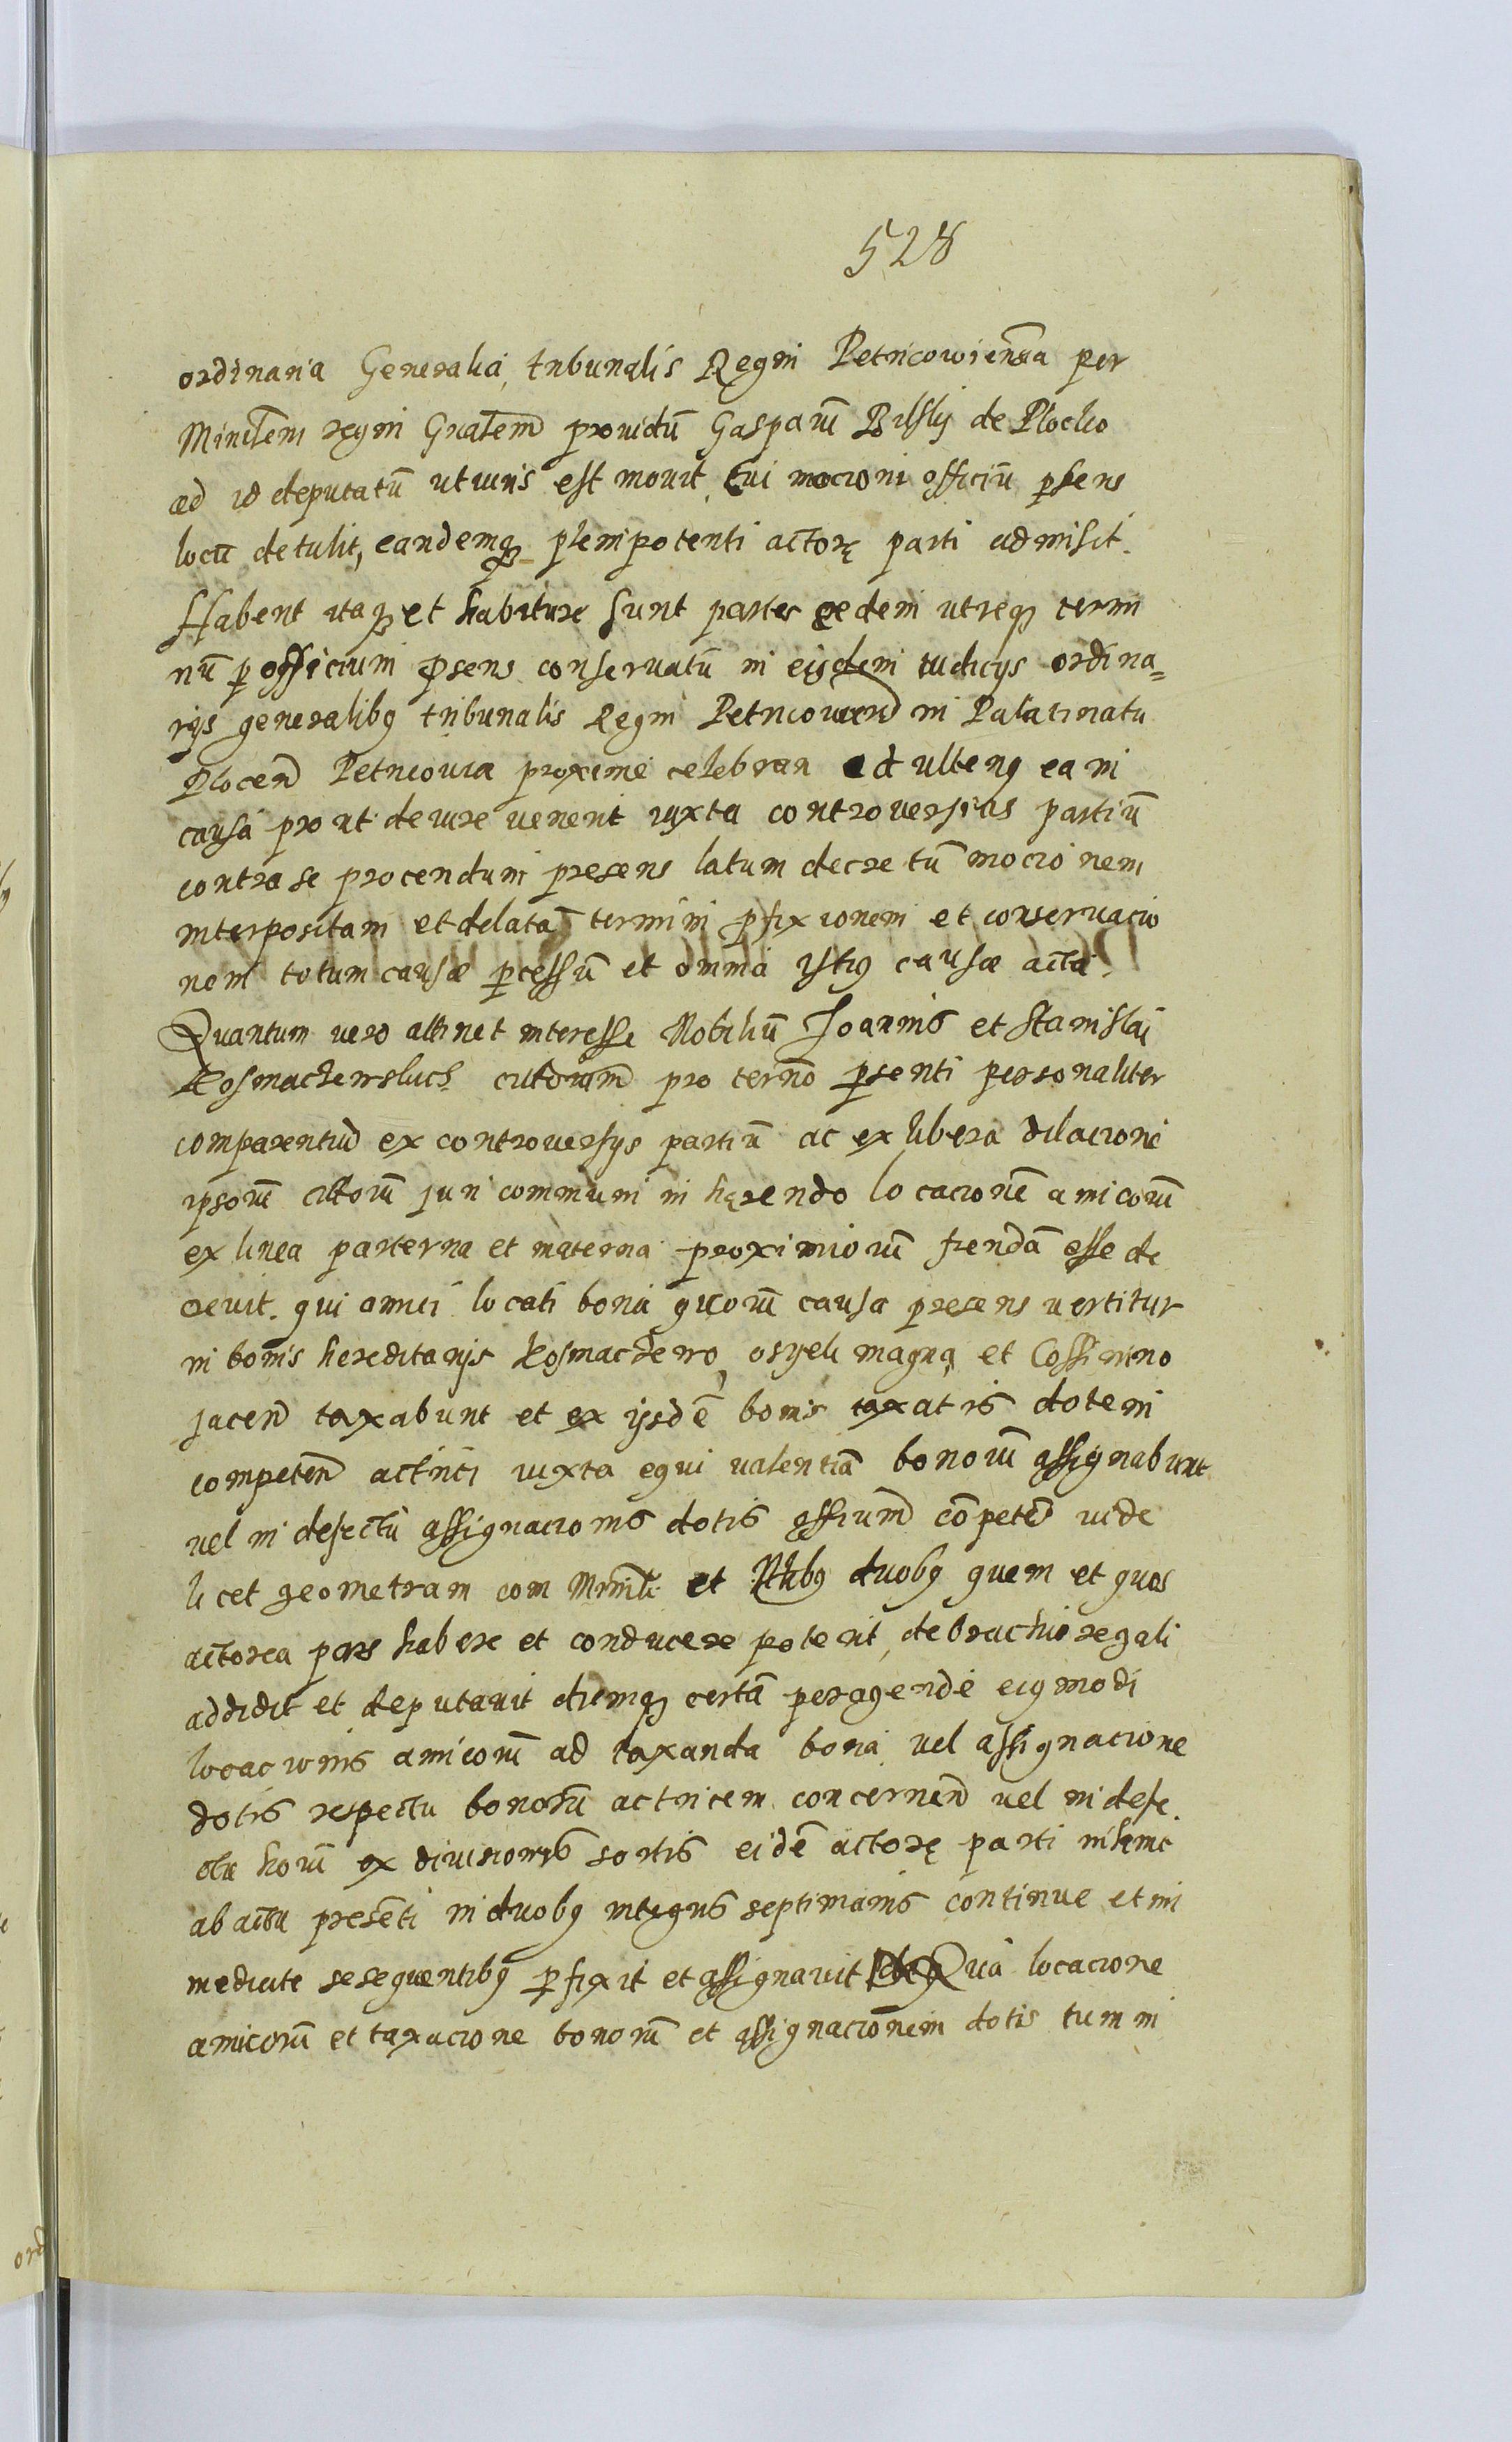 528
ordinaria Generalia, tribunalis Regni Petricowiensia per
Ministem regni Gnałem providũ Gasparũ Bilsky de Plocko
ad id deputatũ ut iuris est movit, Cui mocioni officiũ psens
locũ detulit, eandemq plenipotenti actorę parti admisit.
Habent itaq et habiture sunt partes eedem utreq termi
nũ p officium psens conservatũ in eisdem iudicijs ordina=
rijs generalibq tribunalis Regni Petricovien in Palatinatu
Plocen Petricovia proxime celebran ad ulterig ea in
causa prout de iure venerit iuxta controversias partiũ
contra se procendum presens latum decretũ mocionem
interpositam et delatã termini pfixionem et conservacio
nem totum causæ pcessũ et omnia istig causæ acta.
Quantum vero attinet interesse Nobiliũ Joannis et Stanislai
Kosmaczewskich citatorum pro terno psenti personaliter
comparentiũ ex controversijs partiũ ac ex libera dilacione
ipsorũ cittorũ juri communi in hęrendo locacionẽ amicorũ
ex linea parterna et materna proximiorũ fiendã esse de
crevit. qui amici locati bona quorũ causa presens vertitur
in bonis hereditarijs Kosmaczewo, osyeli magna, et Cossinino
jacen taxabunt et ex ijsdẽ bonis taxatis dotem
competen actrici iuxta equi valentiã bonorũ assignabunt
vel in defectũ assignacionis dotis cõpeten vide
licet geometram com Minrli et Nblibq duobq quem et quos
actorea pars habere et conducere poterit, de brachio regali
addidit et deputavit diemq certã peragende eiqmodi
locacionis amicorũ ad taxanda bona vel assignacione
dotis respectu bonorũ actricem concernen vel in defe.
ctu horũ ex divisionis sortis eidẽ actorę parti
ab actu presẽti in duobq integris septimanis continue et im
mediate se sequentibq pfixit et assignavit Qua locacione
amicorũ et taxacione bonorũ et assignacionem dotis tum in